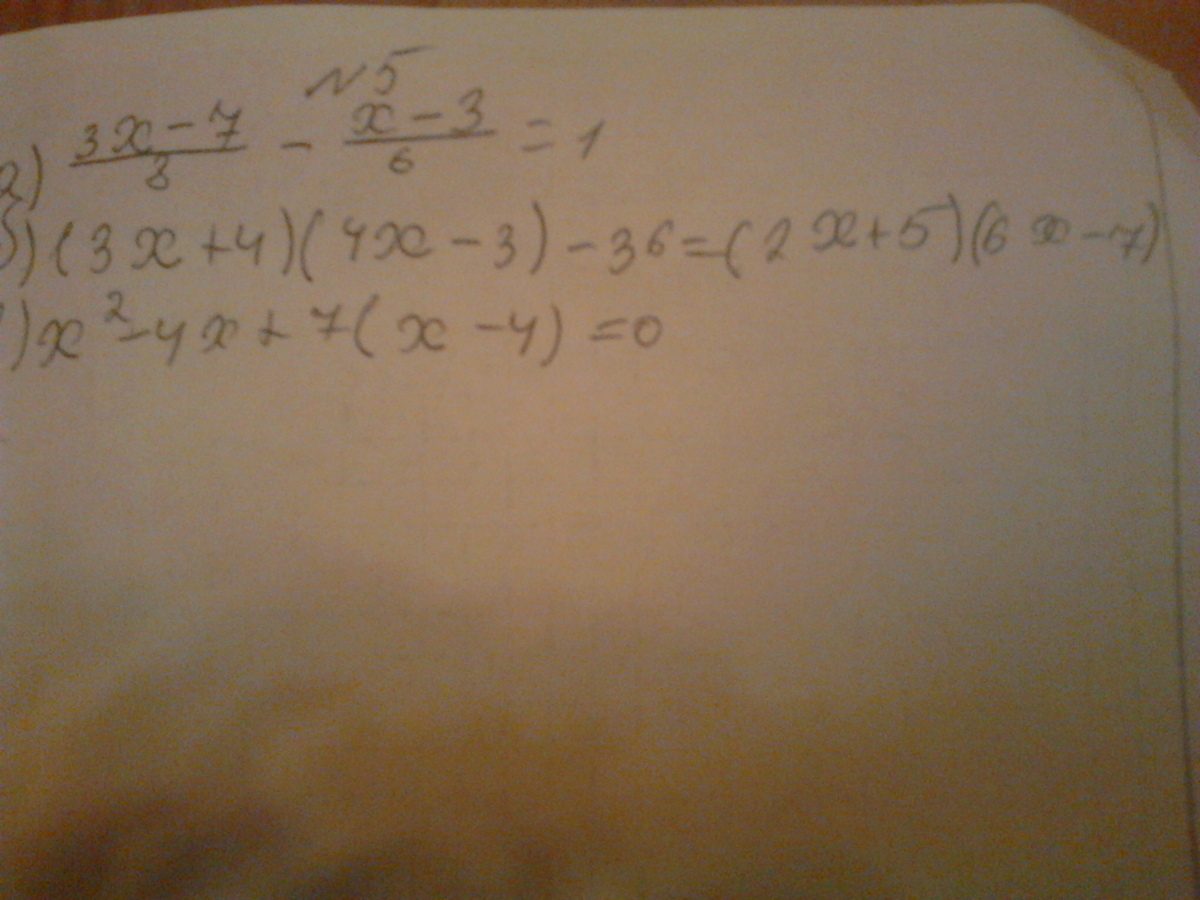 №5
а) (3x-7)/8 - (x-3)/6 = 1
б) (3x+4)(4x-3)-36=(2x+5)(6x-7)
) x²-4x+7(x-4)=0